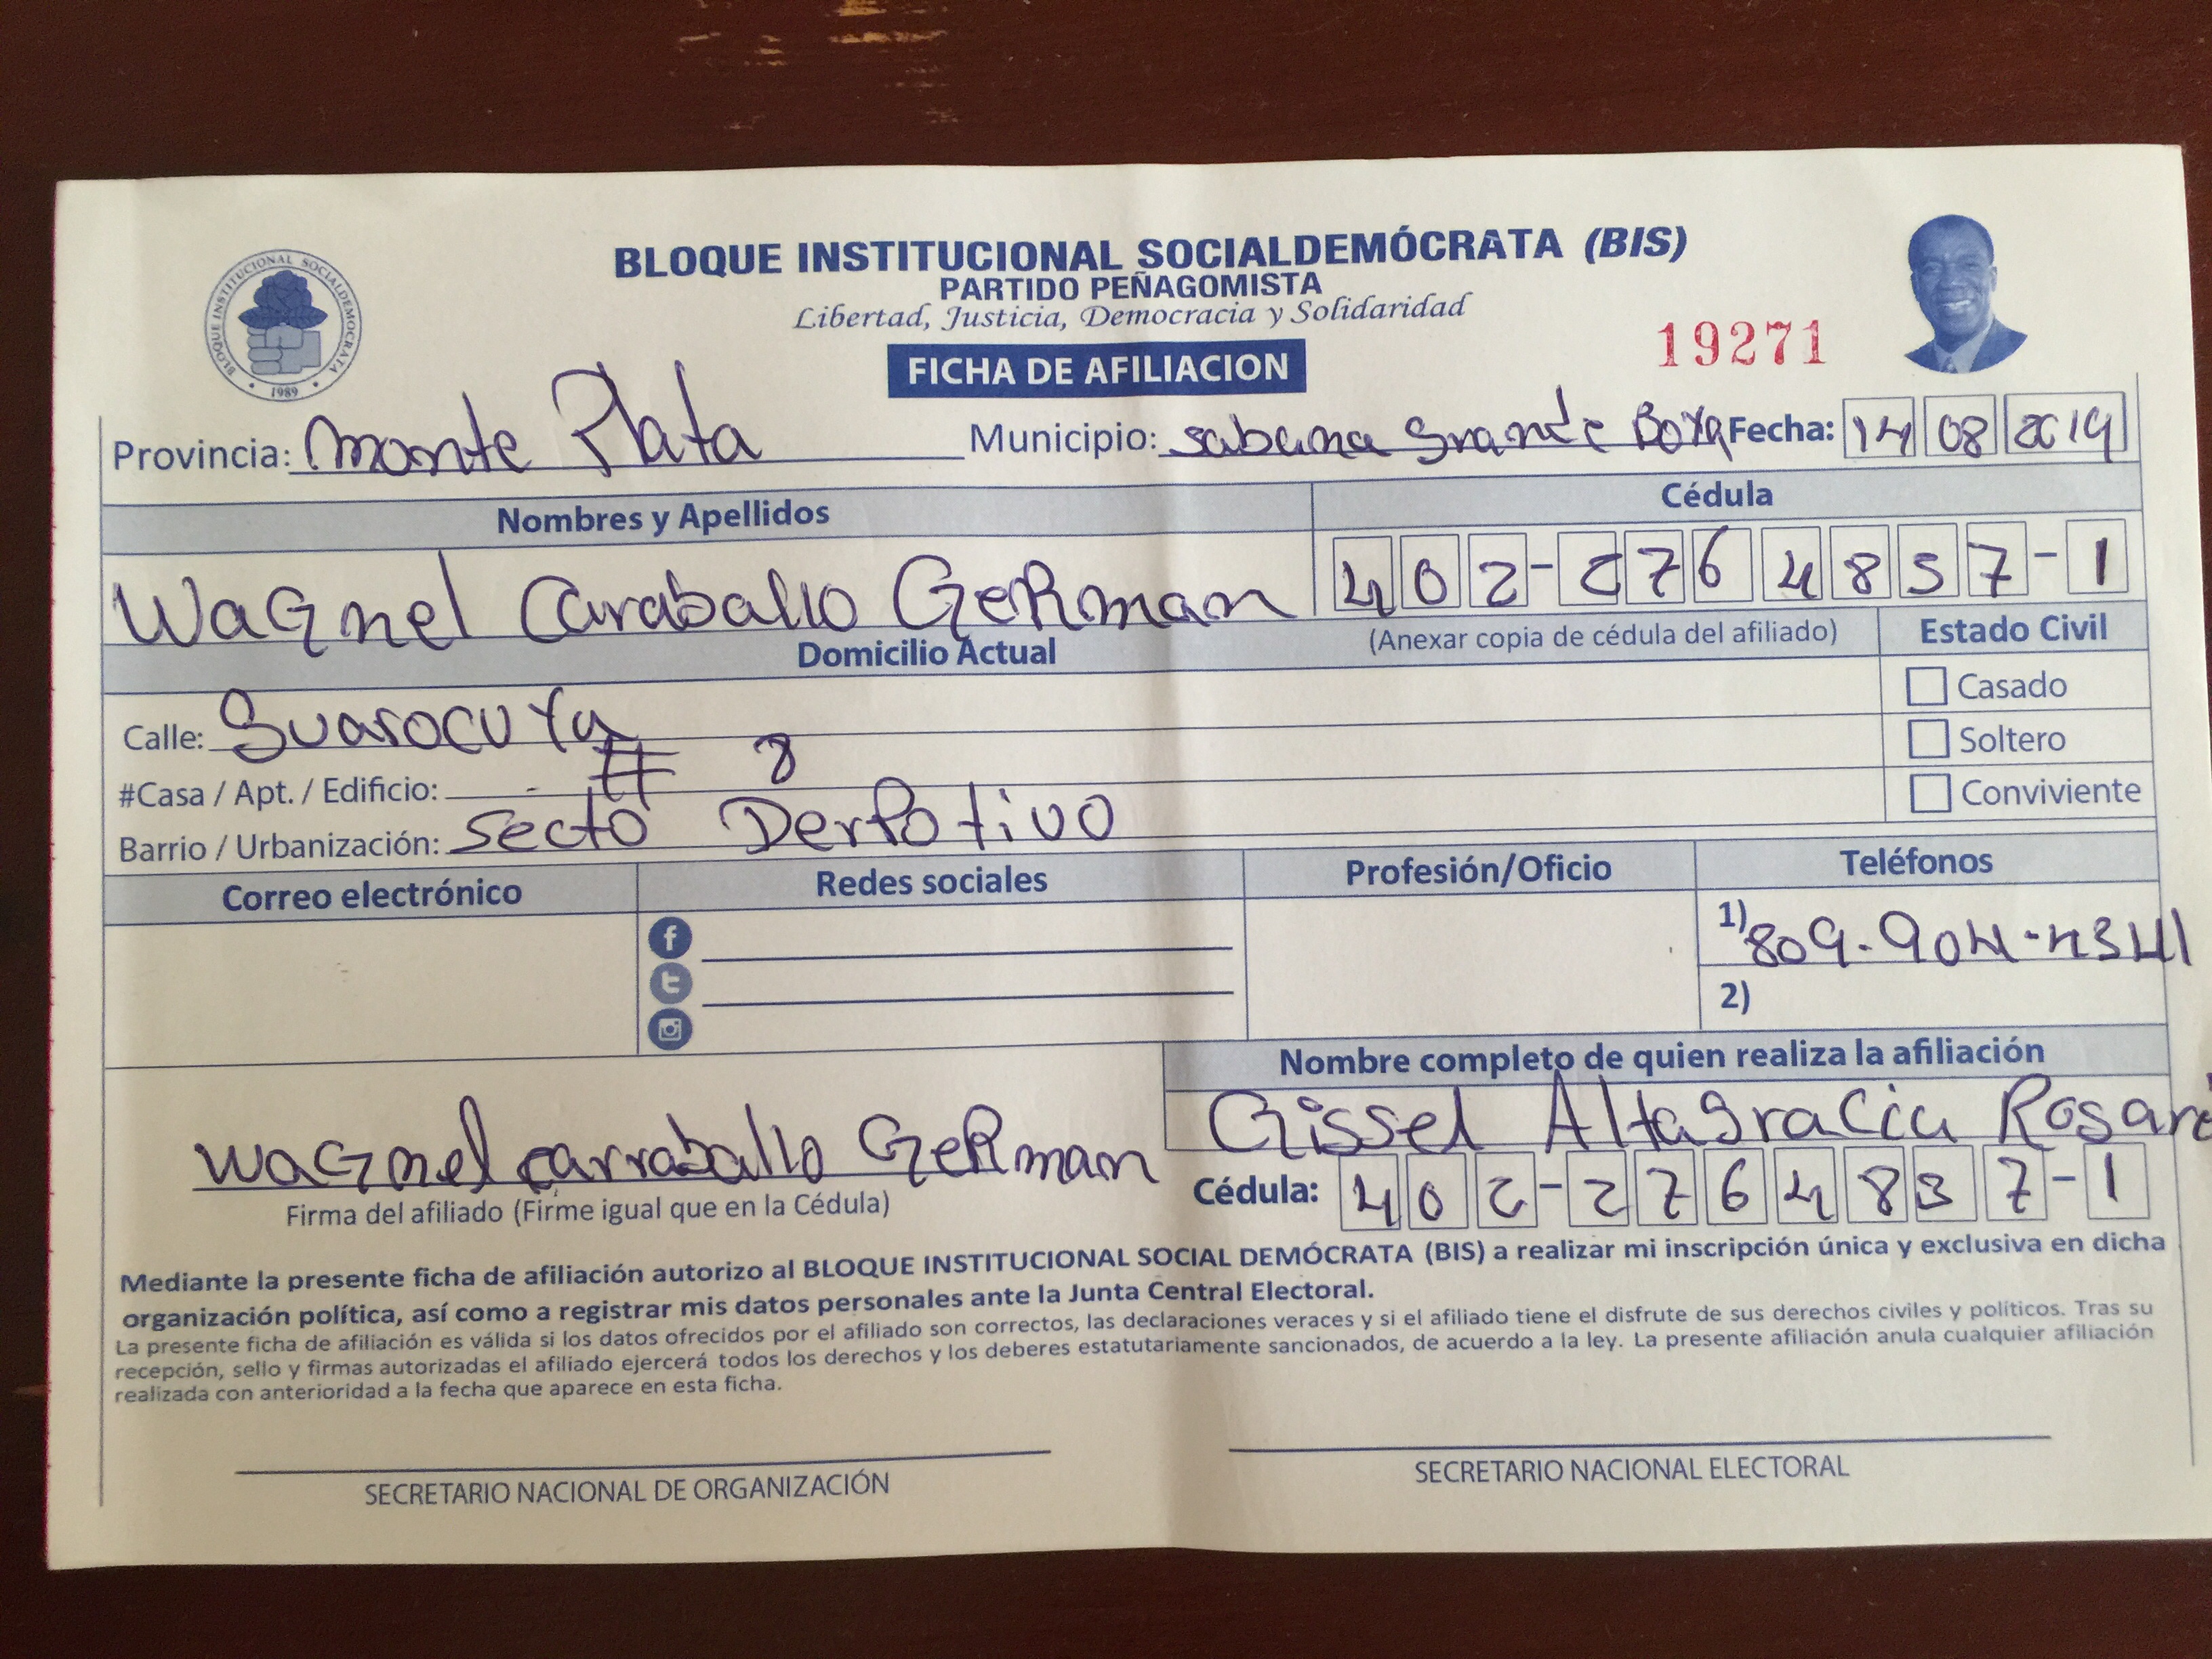 BLOQUE INSTITUCIONAL SOCIALDEMÓCRATA (BIS)
PARTIDO PEÑAGOMISTA
Libertad, Justicia, Democracia y Solidaridad
BLOQUE INSTITUCIONAL SOCIALDEMOCRATA
1989
19271
FICHA DE AFILIACION
Provincia: Monte Plata Municipio: Sabana Grande Boya Fecha: 14 08 2019
Nombres y Apellidos Cédula
Wagnel Caraballo GeRman 402-2764837-1
Domicilio Actual (Anexar copia de cédula del afiliado) Estado Civil
Calle: Guarocuya Casado
#Casa / Apt. / Edificio: # 8 Soltero
Barrio / Urbanización: Secto Derpotivo Conviviente
Correo electrónico Redes sociales Profesión/Oficio Teléfonos
1) 809-904-4341
2)
Nombre completo de quien realiza la afiliación
Gissel Altagracia
Wagnel carraballo GeRman
Firma del afiliado (Firme igual que en la Cédula)
Cédula: 402-2764837-1
Mediante la presente ficha de afiliación autorizo al BLOQUE INSTITUCIONAL SOCIAL DEMÓCRATA (BIS) a realizar mi inscripción única y exclusiva en dicha
organización política, así como a registrar mis datos personales ante la Junta Central Electoral.
La presente ficha de afiliación es válida si los datos ofrecidos por el afiliado son correctos, las declaraciones veraces y si el afiliado tiene el disfrute de sus derechos civiles y políticos. Tras su
recepción, sello y firmas autorizadas el afiliado ejercerá todos los derechos y los deberes estatutariamente sancionados, de acuerdo a la ley. La presente afiliación anula cualquier afiliación
realizada con anterioridad a la fecha que aparece en esta ficha.
SECRETARIO NACIONAL DE ORGANIZACIÓN SECRETARIO NACIONAL ELECTORAL